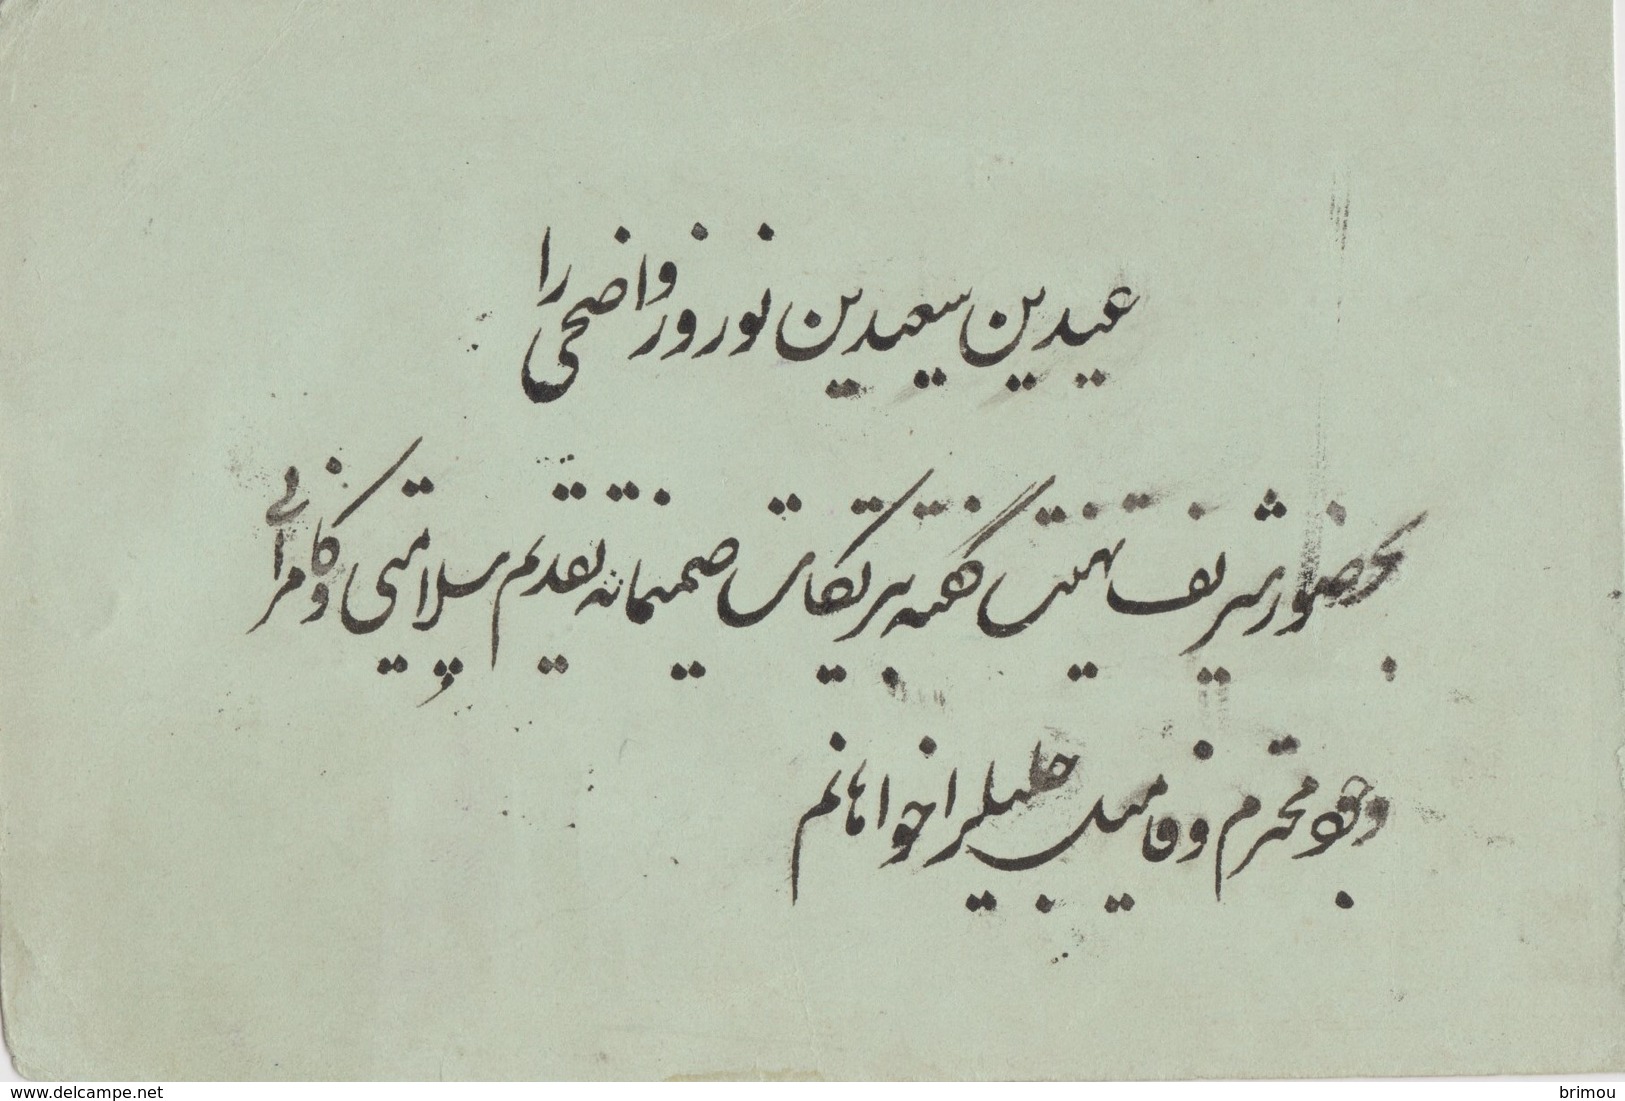 عیدین سعیدین نوروز و اضحی را
بحضور شریف تهنیت گفته تبریکات صمیمانه تقدیم سلامتی و کامرانی
وجود محترم و فامیل جلیل را خواهانم
www.delcampe.net
brimou